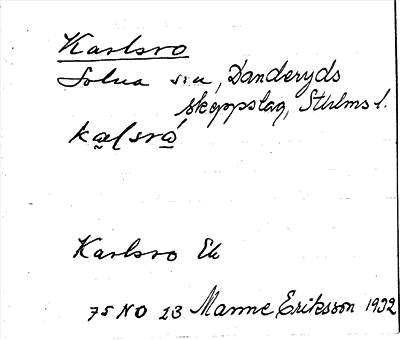 Karlsro
Solna sn, Danderyds
skeppslag, Sthlms l.
kalsró
Karlsro Ek
75 NO 23 Manne Eriksson 1932